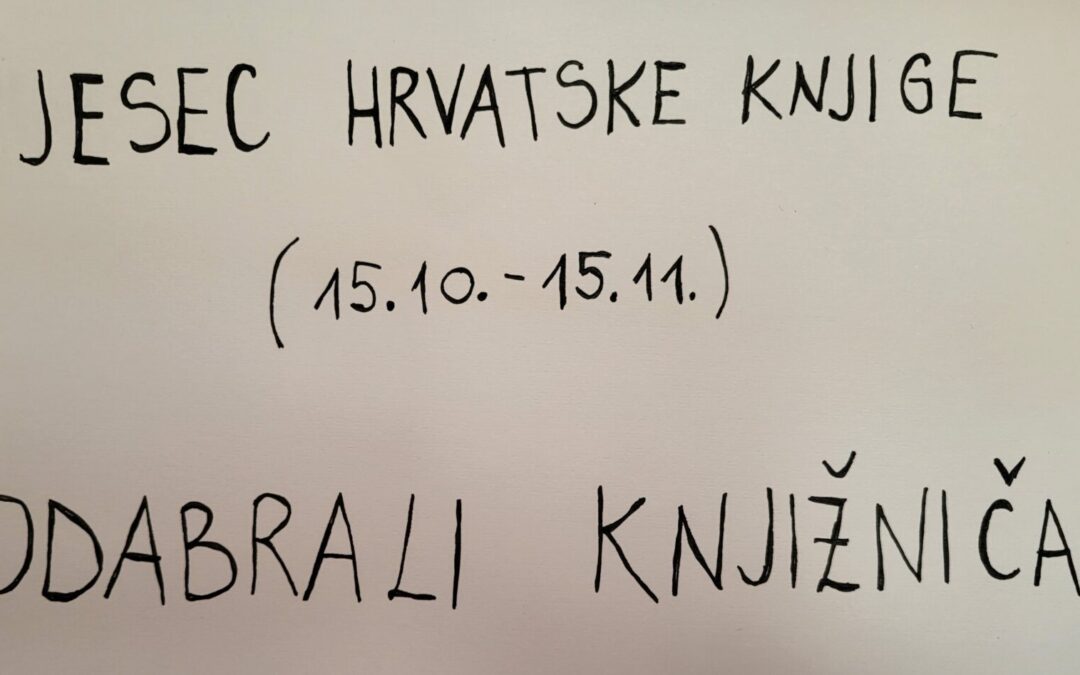 JESEC HRVATSKE KNJIGE
(15.10.-15.11.)
ODABRALI KNJIŽNIČA